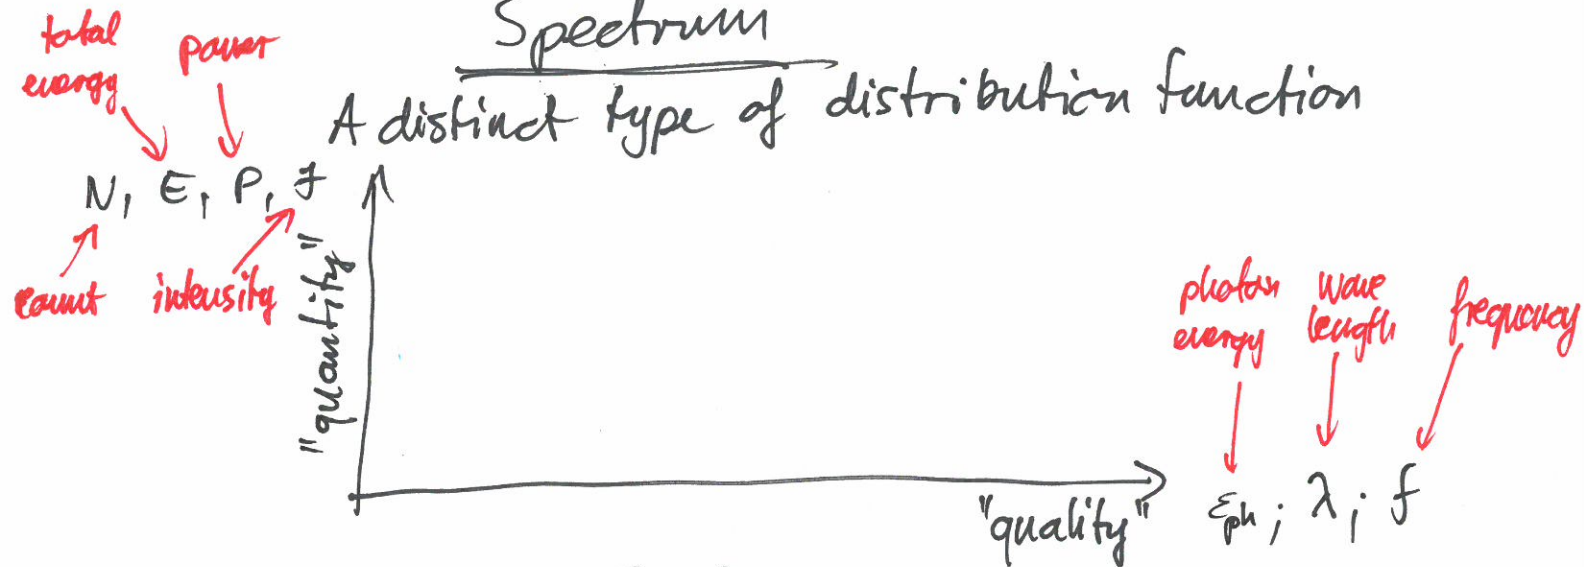 Spectrum
A distinct type of distribution function
total energy
power
N, E, P, J
count
intensity
"quantity"
photon energy
wave length
frequency
"quality"
εph; λ; f